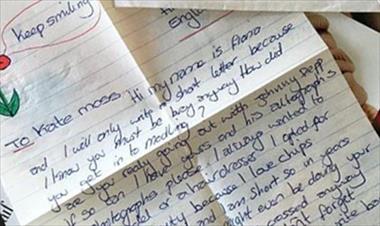 Keep smiling
England
To Kate Moss Hi my name is Fiona
and I will only write a short letter because
I know you must be busy anyway How did
you get in to modling?
Are you realy going out with Johnny Depp
if so can I have yours and his autographs
photographs please I always wanted to
or a hairdresser I opted for
because I love chips
and am short so in years
might even be doing your
anyway
forget